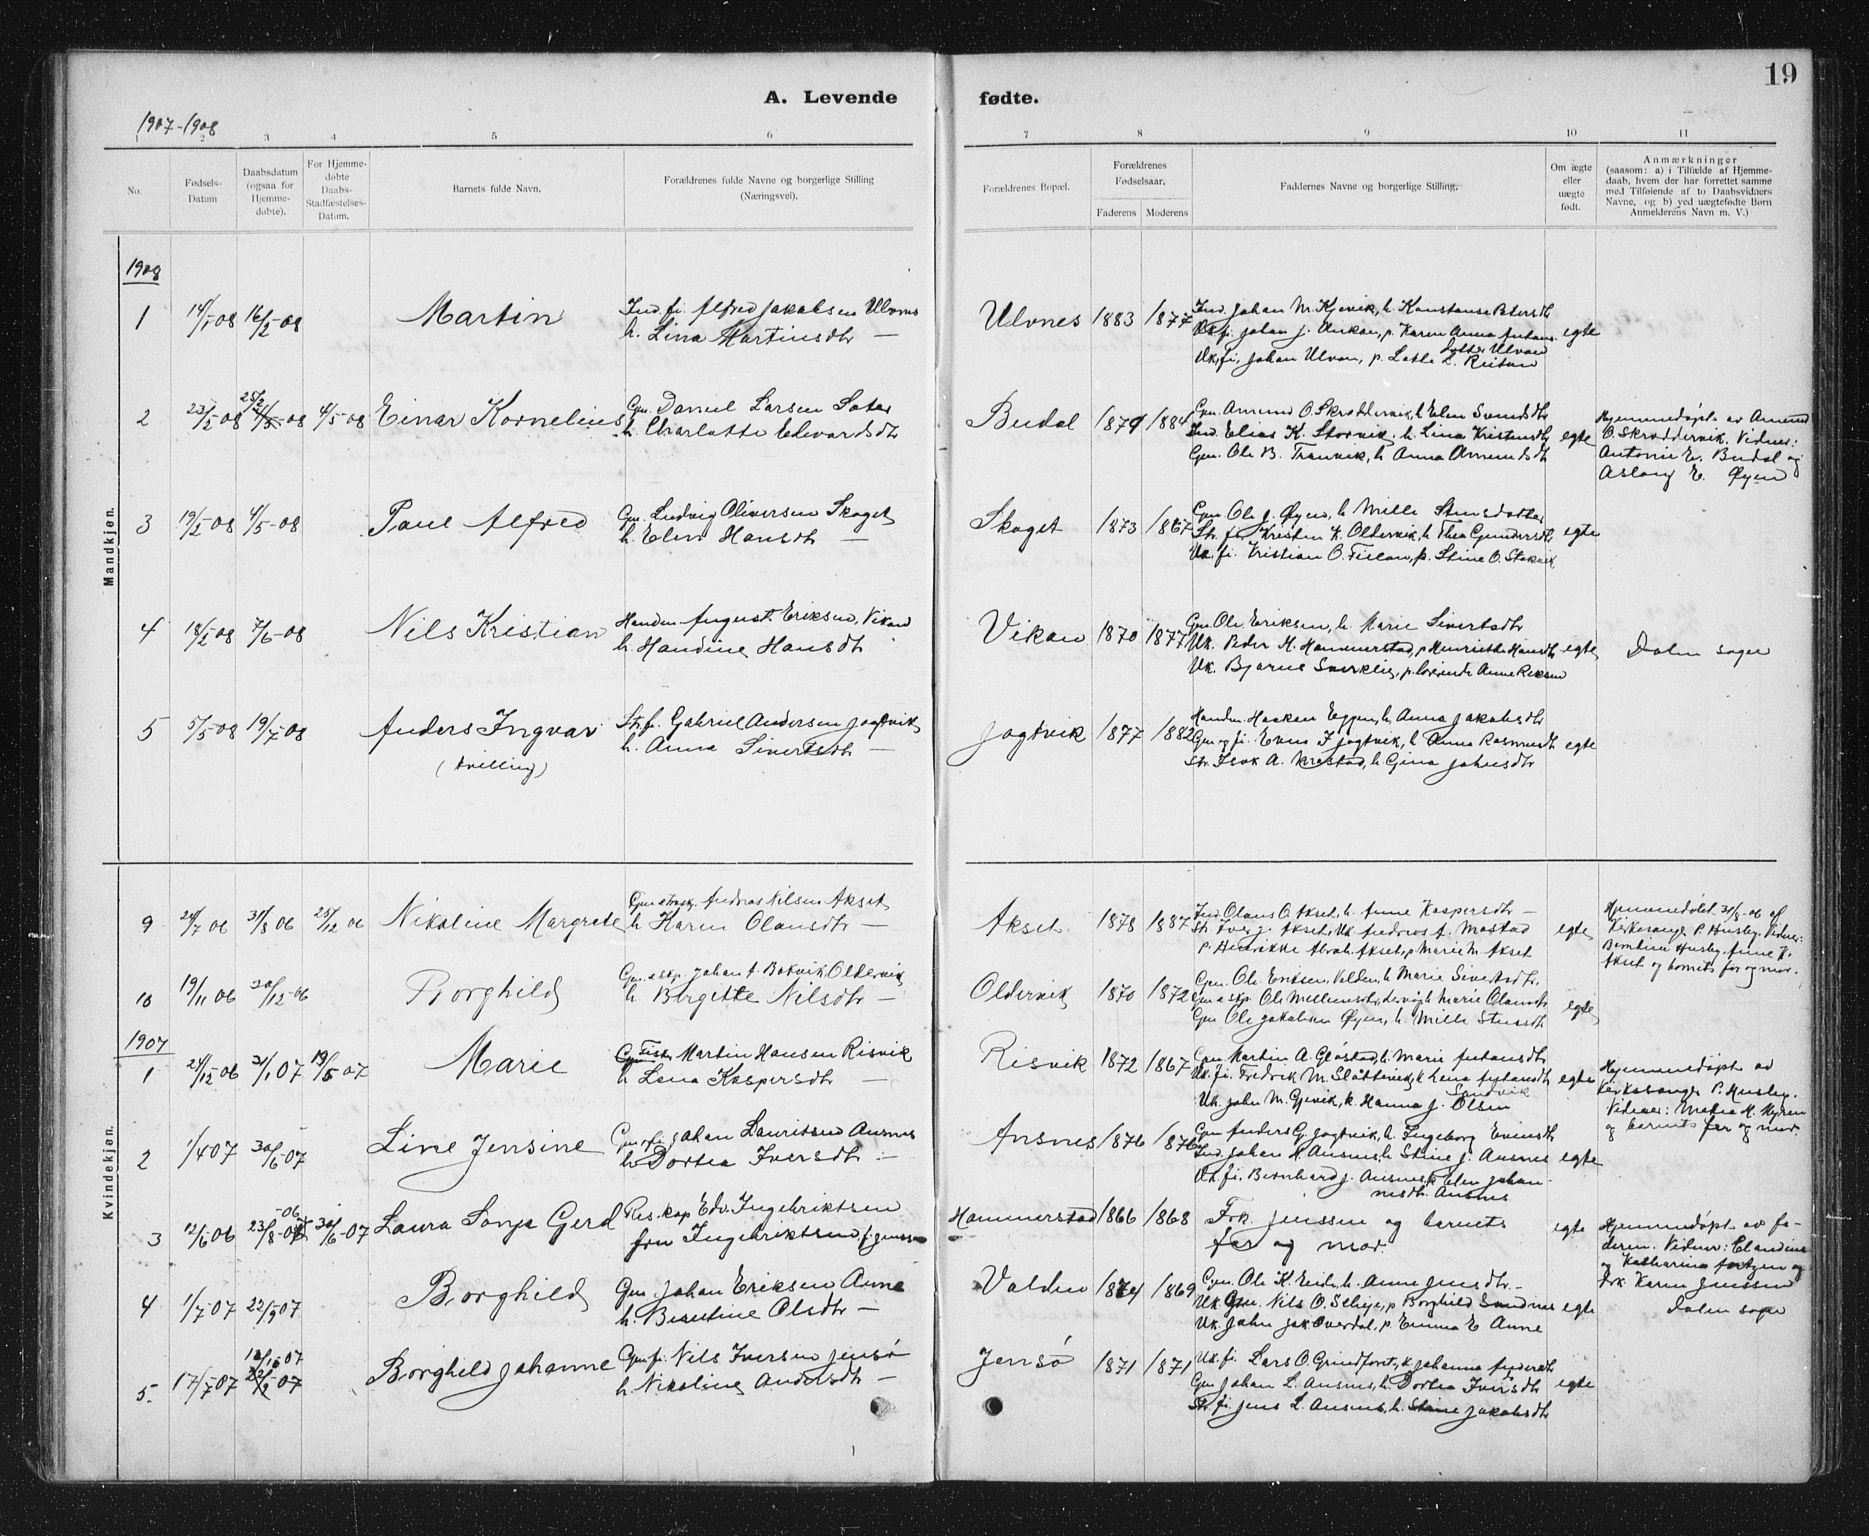 19
A. Levende fødte.
1907-1908
1 2 3 4 5 6 7 8 9 10 11
No.
Fødsels-
Datum
Daabsdatum
(ogsaa for
Hjemme-
døbte).
For Hjemme-
døbte
Daabs-
Stadfæstelses-
Datum.
Barnets fulde Navn.
Forældrenes fulde Navne og borgerlige Stilling
(Næringsvei).
Forældrenes Bopæl.
Forældrenes
Fødselsaar.
Faderens Moderens
Faddernes Navne og borgerlige Stilling.
Om ægte
eller
uægte
født.
Anmærkninger
(saasom: a) i Tilfælde af Hjemme-
daab, hvem der har forrettet samme
med Tilføiende af to Daabsvidners
Navne, og b) ved uægtefødte Børn
Anmelderens Navn m. V.)
Mandkjøn.
1908
1 14/1-08 16/2-08 Martin
Ind. fi. Alfred Jakobsen Ulvnes
h. Lina Martinsdtr —
Ulvnes 1883 1877
Ind. Johan M. Kjørvik, h. Konstanse Petersdtr
Uk. fi. Johan J. p. Karen Anna Antons-
datter Ulvan
Uk. fi. Johan Ulvan, p. L. Reitan
egte
2 23/2-08 25/2 4/5-08 4/5-08 Einar Kornelius
Gm. Daniel Larsen
h. Charlotte Edvardsdtr
Budal 1879 1884
Gm. Amund O. Skrøddervik, h. Elen Svendsdtr
Ind. Elias K. Storvik, h. Lina Kristensdtr
Gm. Ole B. Tranvik, h. Anna Amundsdtr
egte
Hjemmedøpt av Amund
O. Skrøddervik. Vidner:
Antonie E. Budal og
Aslaug E. Øyen
3 19/2-08 4/5-08 Paul Alfred
Gm. Ludvig Oliversen Skaget
h. Elen Hansdtr —
Skaget 1873 1867
Gm. Ole J. Øyen, h. Mille Stensdatter
Str. fi. Kristen K. Oldervik, h. Thea Gundersdtr
Uk. fi. Kristian O. p. Stine O. Storvik
egte
4 18/2-08 7/6-08 Nils Kristian
Handm. August Eriksen, Vikan
h. Handine Hansdtr
Vikan 1870 1877
Gm. Ole Eriksen, h. Marie Sivertsdtr
Uk. Peder H. Hammerstad, p. Henriette Hansdtr
Uk. Bjarne p. Anne
egte
Dolm sogn
5 5/5-08 19/7-08 Anders Ingvar
(tvilling)
Str. f. Gabriel Andersen Jøgtvik
h. Anna Sivertsdtr —
Jøgtvik 1877 1882
Handm. Haakon Eggen, h. Anna Jakobsdtr
Gm. og fi. Even F. Jøgtvik, h. Anna Rasmusdtr
Str. Isak A. Mastad, h. Gina Johnsdtr
egte
Kvindekjøn.
9 24/7 06 31/8 06 25/12 06 Nikoline Margrete
Andreas Nilsen Akset
h. Karen Olausdtr —
Akset 1878 1887
Ind. Olaus O. Akset, h. Anne Kaspersdtr —
Str. Iver J. Akset, Uk. Andreas A. Mastad
p. Henrikke Abrah. Akset, p. Marie M. Akset
egte
Hjemmedøbt 31/8-06 af
Kirkesanger P. Husby. Vidner:
Berntine Husby, Anne K.
Akset og barnets far og mor.
10 19/11 06 30/12-06 Borghild
Johan A. Bakvik Oldervik
h. Bergitte Nilsdtr —
Oldervik 1870 1872
Gm. Ole Eriksen Valden, h. Marie Sivertsdtr.
Marie Olausdtr
Gm. Ole Jakobsen Øyen, h. Mille Stensdtr
egte
1907
1 24/12 06 31/1 07 19/5 07 Marie
Fisk. Martin Hansen Risvik
h. Lena Kaspersdtr —
Risvik 1872 1867
Gm. Martin A. Gløstad, h. Marie Antonsdtr
Uk. fi. Fredrik M. Slåttevik, h. Lena
Sandvik
Uk. John M. Gjevik, k. Hanna J. Olsen
egte
Hjemmedøpt av
Kirkesanger P. Husby.
Vidner: H.
og barnets far og mor.
2 1/4 07 30/6-07 Line Jensine
Gm. og fi. Johan Lauritsen Ansnes
h. Dortea Iversdtr —
Ansnes 1876 1876
Gm. Anders G. Jøgtvik, h. Ingeborg Evensdtr
Ind. Johan H. Ansnes, h. Stine J. Ansnes
Uk. fi. Bernhard J. Ansnes, p. Elen Johan-
nesdtr. Ansnes
egte
3 12/6 06 23/8-06 30/6-07 Laura Sonja Gerd
Res. kap Edv. Ingebriktsen
fru Ingebriktsen f. Jenssen
Hammerstad 1866 1868
Frk. Jenssen og barnets
far og mor.
egte
Hjemmedøpt av fa-
deren. Vidner: Claudine
og Katharina og
frk. Karen Jenssen
4 1/7-07 22/9 07 Borghild
Gm. Johan Eriksen Anne
h. Berntine Olsdtr —
Valden 1874 1869
Gm. Ole K. Eide, h. Anne Jensdtr —
Uk. Gm. Nils O. Selsje, p. Borghild Sandnes
Uk. John Jak. Overdal, p. Emma E. Anne
egte
Dolm sogn
5. 17/7-07 07 22/2-07 Borghild Johanne
Gm. fi. Nils Iversen Jensø
h. Nikoline Andersdtr —
Jensø 1871 1871
Uk. fi. Lars O. Grindforet, k. Johanna
Gm. Johan L. Ansnes, h. Dortea Iversdtr
Str. fi. Jens L. Ansnes, h. Stine Jakobsdtr
egte